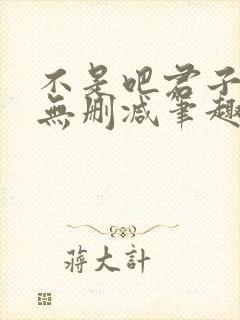 不是吧君子
無删减筆趣
蔣大計